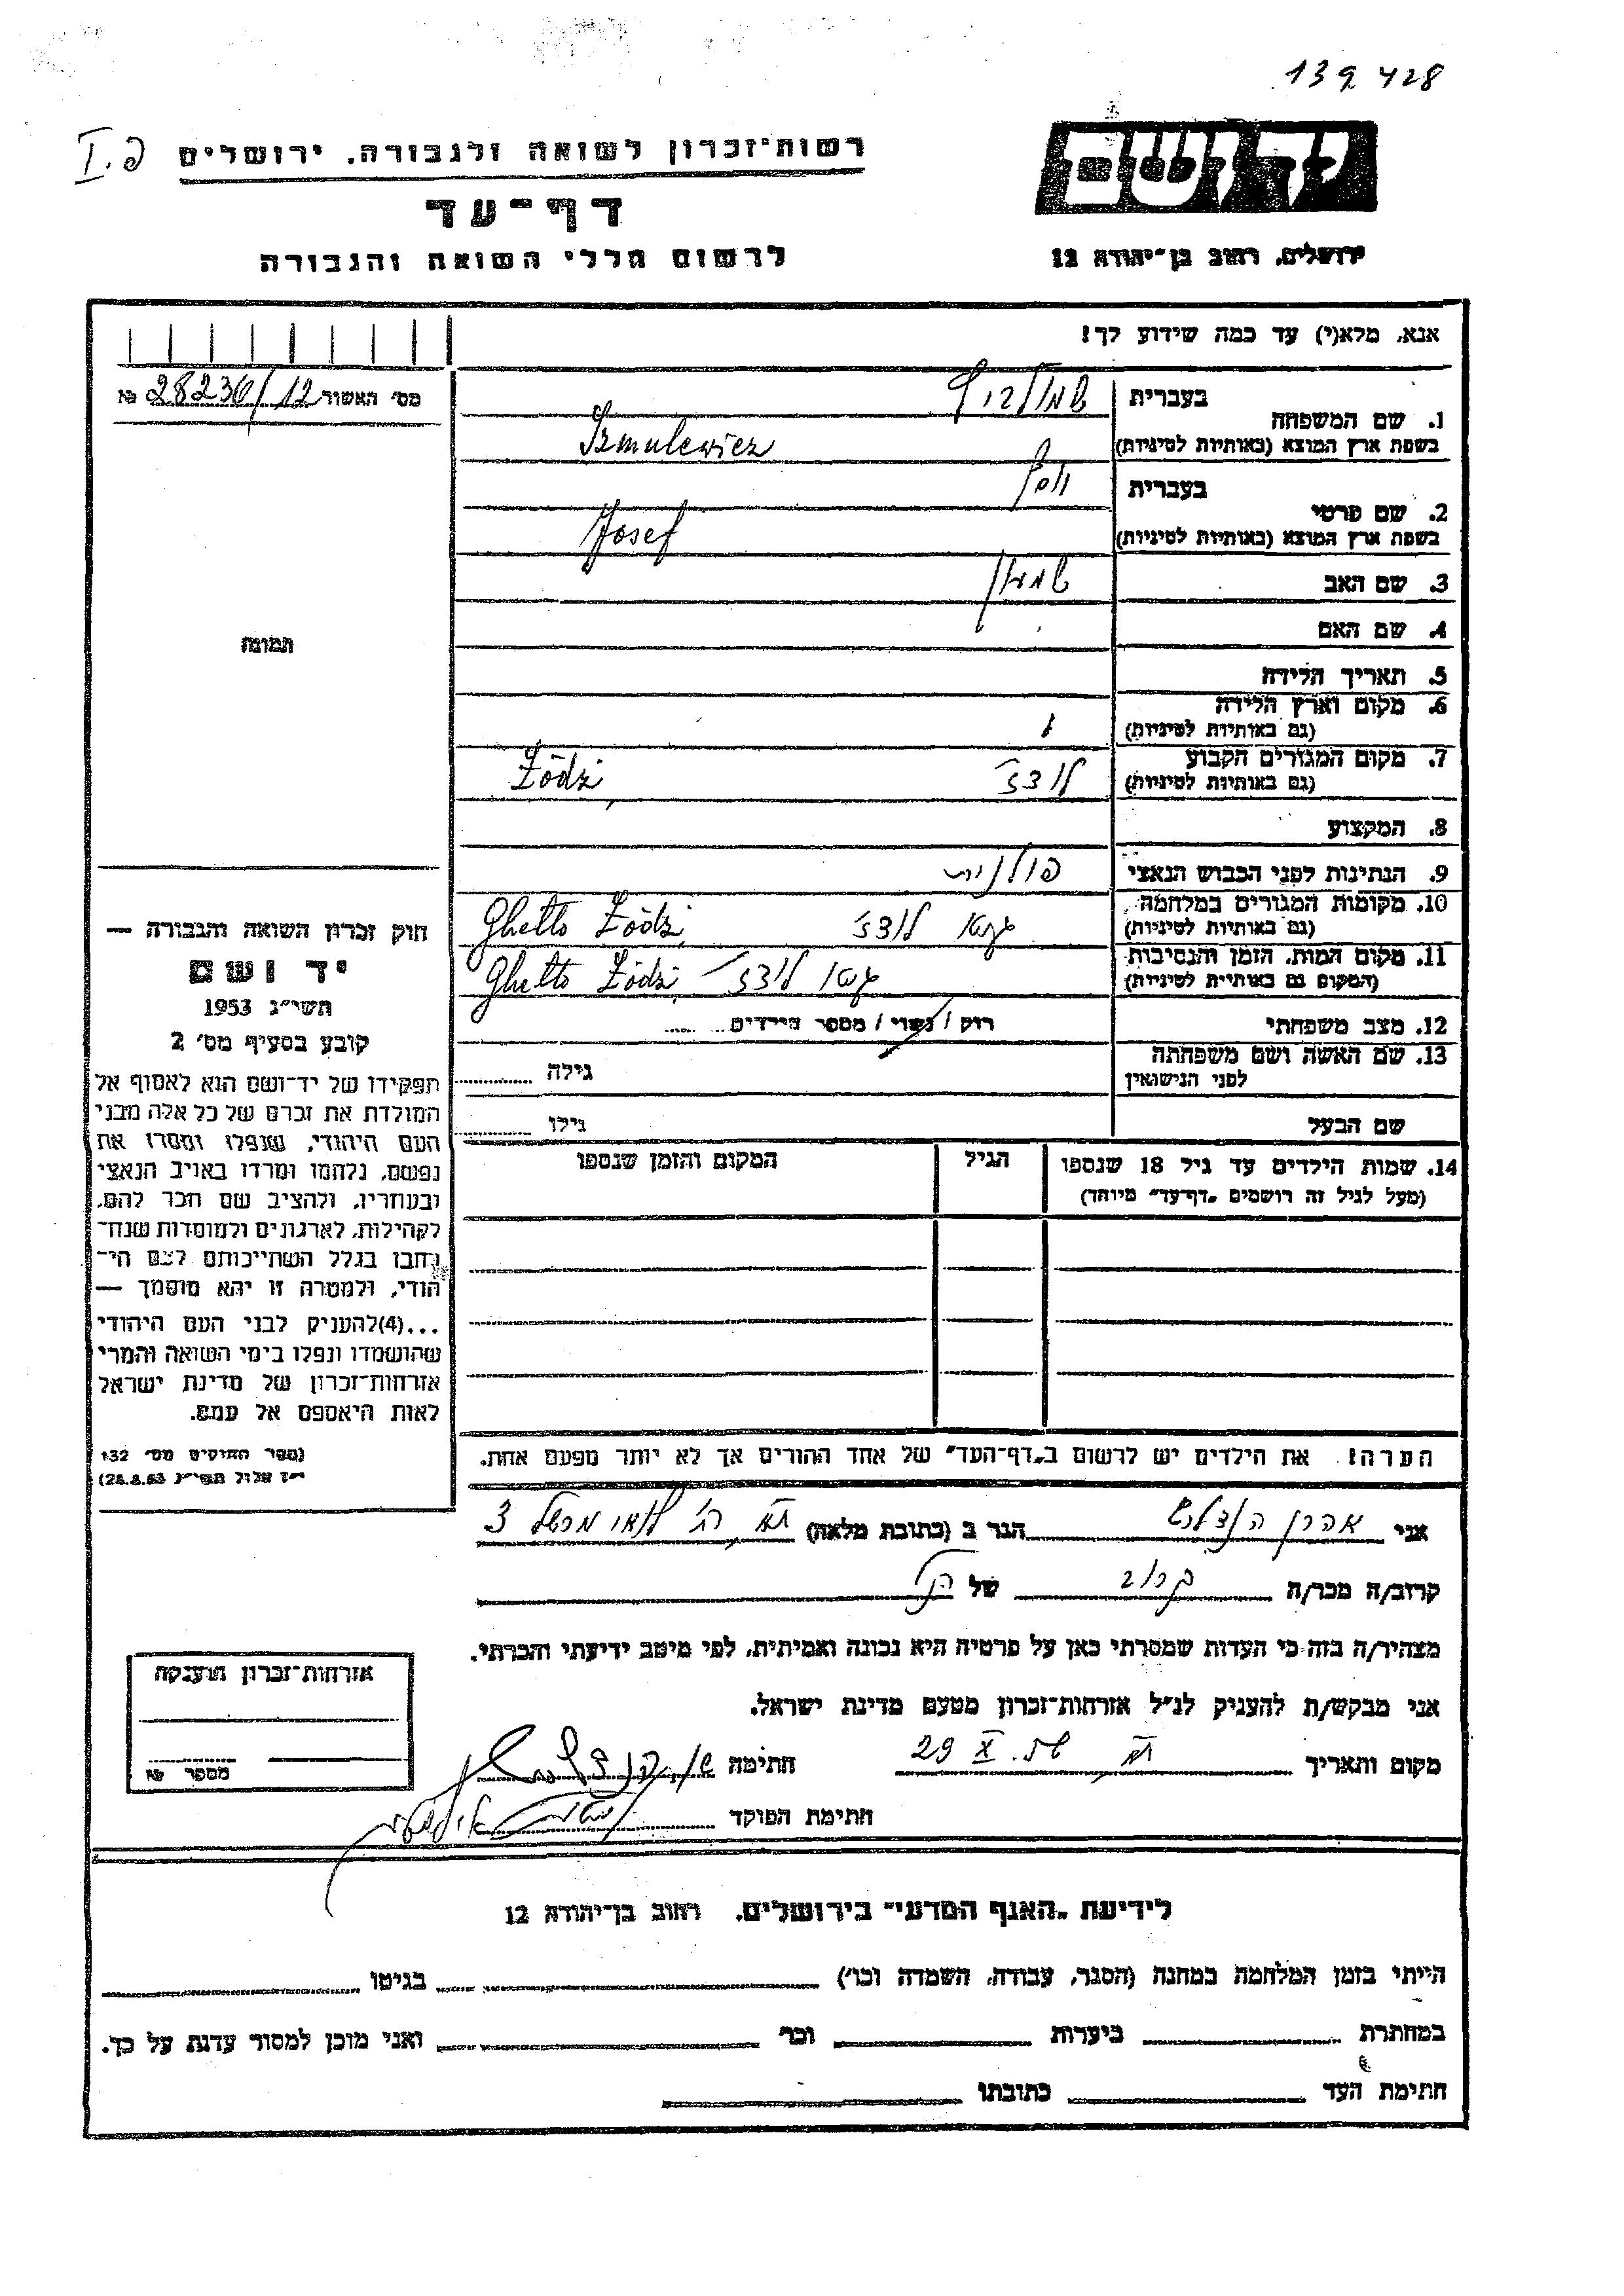 139428
יד ושם
רשות־זכרון לשואה ולגבורה. ירושלים
דף־עד
ירושלים, רחוב בן־יהודה 12
לרשום חללי השואה והגבורה
אנא, מלא(י) עד כמה שידוע לך!
מס׳ האשור 28236/12 №
1. שם המשפחה
בעברית
בשפת ארץ המוצא (באותיות לטיניות) Szmulewicz
2. שם פרטי
בעברית יוסף
בשפת ארץ המוצא (באותיות לטיניות) Josef
3. שם האב
4. שם האם
5. תאריך הלידה
6. מקום וארץ הלידה
(גם באותיות לטיניות)
7. מקום המגורים הקבוע לודז׳ Łódź
(גם באותיות לטיניות)
8. המקצוע
9. הנתינות לפני הכבוש הנאצי פולנית
10. מקומות המגורים במלחמה גטו לודז׳ Ghetto Łódź
(גם באותיות לטיניות)
11. מקום המות, הזמן והנסיבות גטו לודז׳ Ghetto Łódź
(המקום גם באותיות לטיניות)
12. מצב משפחתי רוק / נשוי / מספר הילדים
13. שם האשה ושם משפחתה גילה
לפני הנישואין
שם הבעל גילו
14. שמות הילדים עד גיל 18 שנספו הגיל המקום והזמן שנספו
(מעל לגיל זה רושמים „דף־עד״ מיוחד)
תמונה
חוק זכרון השואה והגבורה —
יד ושם
תשי״ג 1953
קובע בסעיף מס׳ 2
תפקידו של יד־ושם הוא לאסוף אל
המולדת את זכרם של כל אלה מבני
העם היהודי, שנפלו ומסרו את
נפשם, נלחמו ומרדו באויב הנאצי
ובעוזריו, ולהציב שם וזכר להם,
לקהילות, לארגונים ולמוסדות שנח־
רבו בגלל השתייכותם לעם הי־
הודי, ולמטרה זו יהא מוסמך —
...(4)להעניק לבני העם היהודי
שהושמדו ונפלו בימי השואה והמרי
אזרחות־זכרון של מדינת ישראל
לאות היאספם אל עמם.
(ספר החוקים מס׳ 132
י״ז אלול תשי״ג 28.8.53)
הערה! את הילדים יש לרשום ב„דף־העד״ של אחד ההורים אך לא יותר מפעם אחת.
אני אהרן הגר ב (כתובת מלאה) 3
קרוב/ה מכר/ה קרוב של
מצהיר/ה בזה כי העדות שמסרתי כאן על פרטיה היא נכונה ואמיתית, לפי מיטב ידיעתי והכרתי.
אני מבקש/ת להעניק לנ״ל אזרחות־זכרון מטעם מדינת ישראל.
מקום ותאריך 29 X חתימה
חתימת הפוקד
אזרחות־זכרון הוענקה
מספר №
לידיעת „האגף המדעי״ בירושלים, רחוב בן־יהודה 12
הייתי בזמן המלחמה במחנה (הסגר, עבודה, השמדה וכו׳) בגיטו
במחתרת ביערות וכו׳ ואני מוכן למסור עדות על כך.
חתימת העד כתובתו